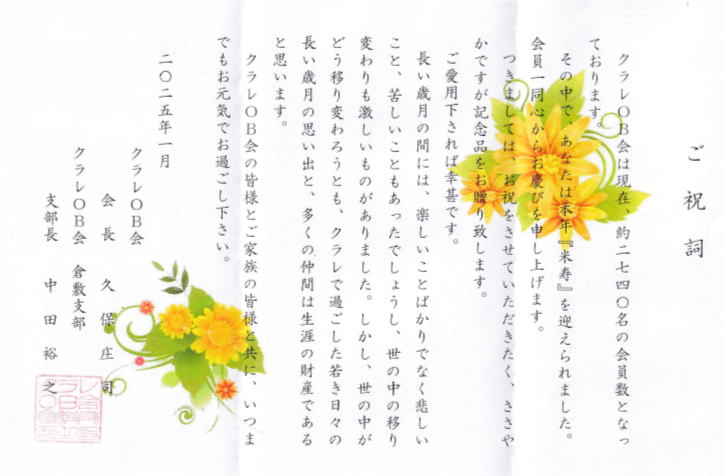 ご祝詞
クラレOB会は現在、約二七四〇名の会員数となっ
ております。
その中で、あなたは本年『米寿』を迎えられました。
会員一同心からお慶びを申し上げます。
つきましては、お祝をさせていただきたく、ささや
かですが記念品をお贈り致します。
ご愛用下されば幸甚です。
長い歳月の間には、楽しいことばかりでなく悲しい
こと、苦しいこともあったでしょうし、世の中の移り
変わりも激しいものがありました。しかし、世の中が
どう移り変わろうとも、クラレで過ごした若き日々の
長い歳月の思い出と、多くの仲間は生涯の財産である
と思います。
クラレOB会の皆様とご家族の皆様と共に、いつま
でもお元気でお過ごし下さい。
二〇二五年一月
クラレOB会
会長 久保庄司
クラレOB会 倉敷支部
支部長 中田裕之